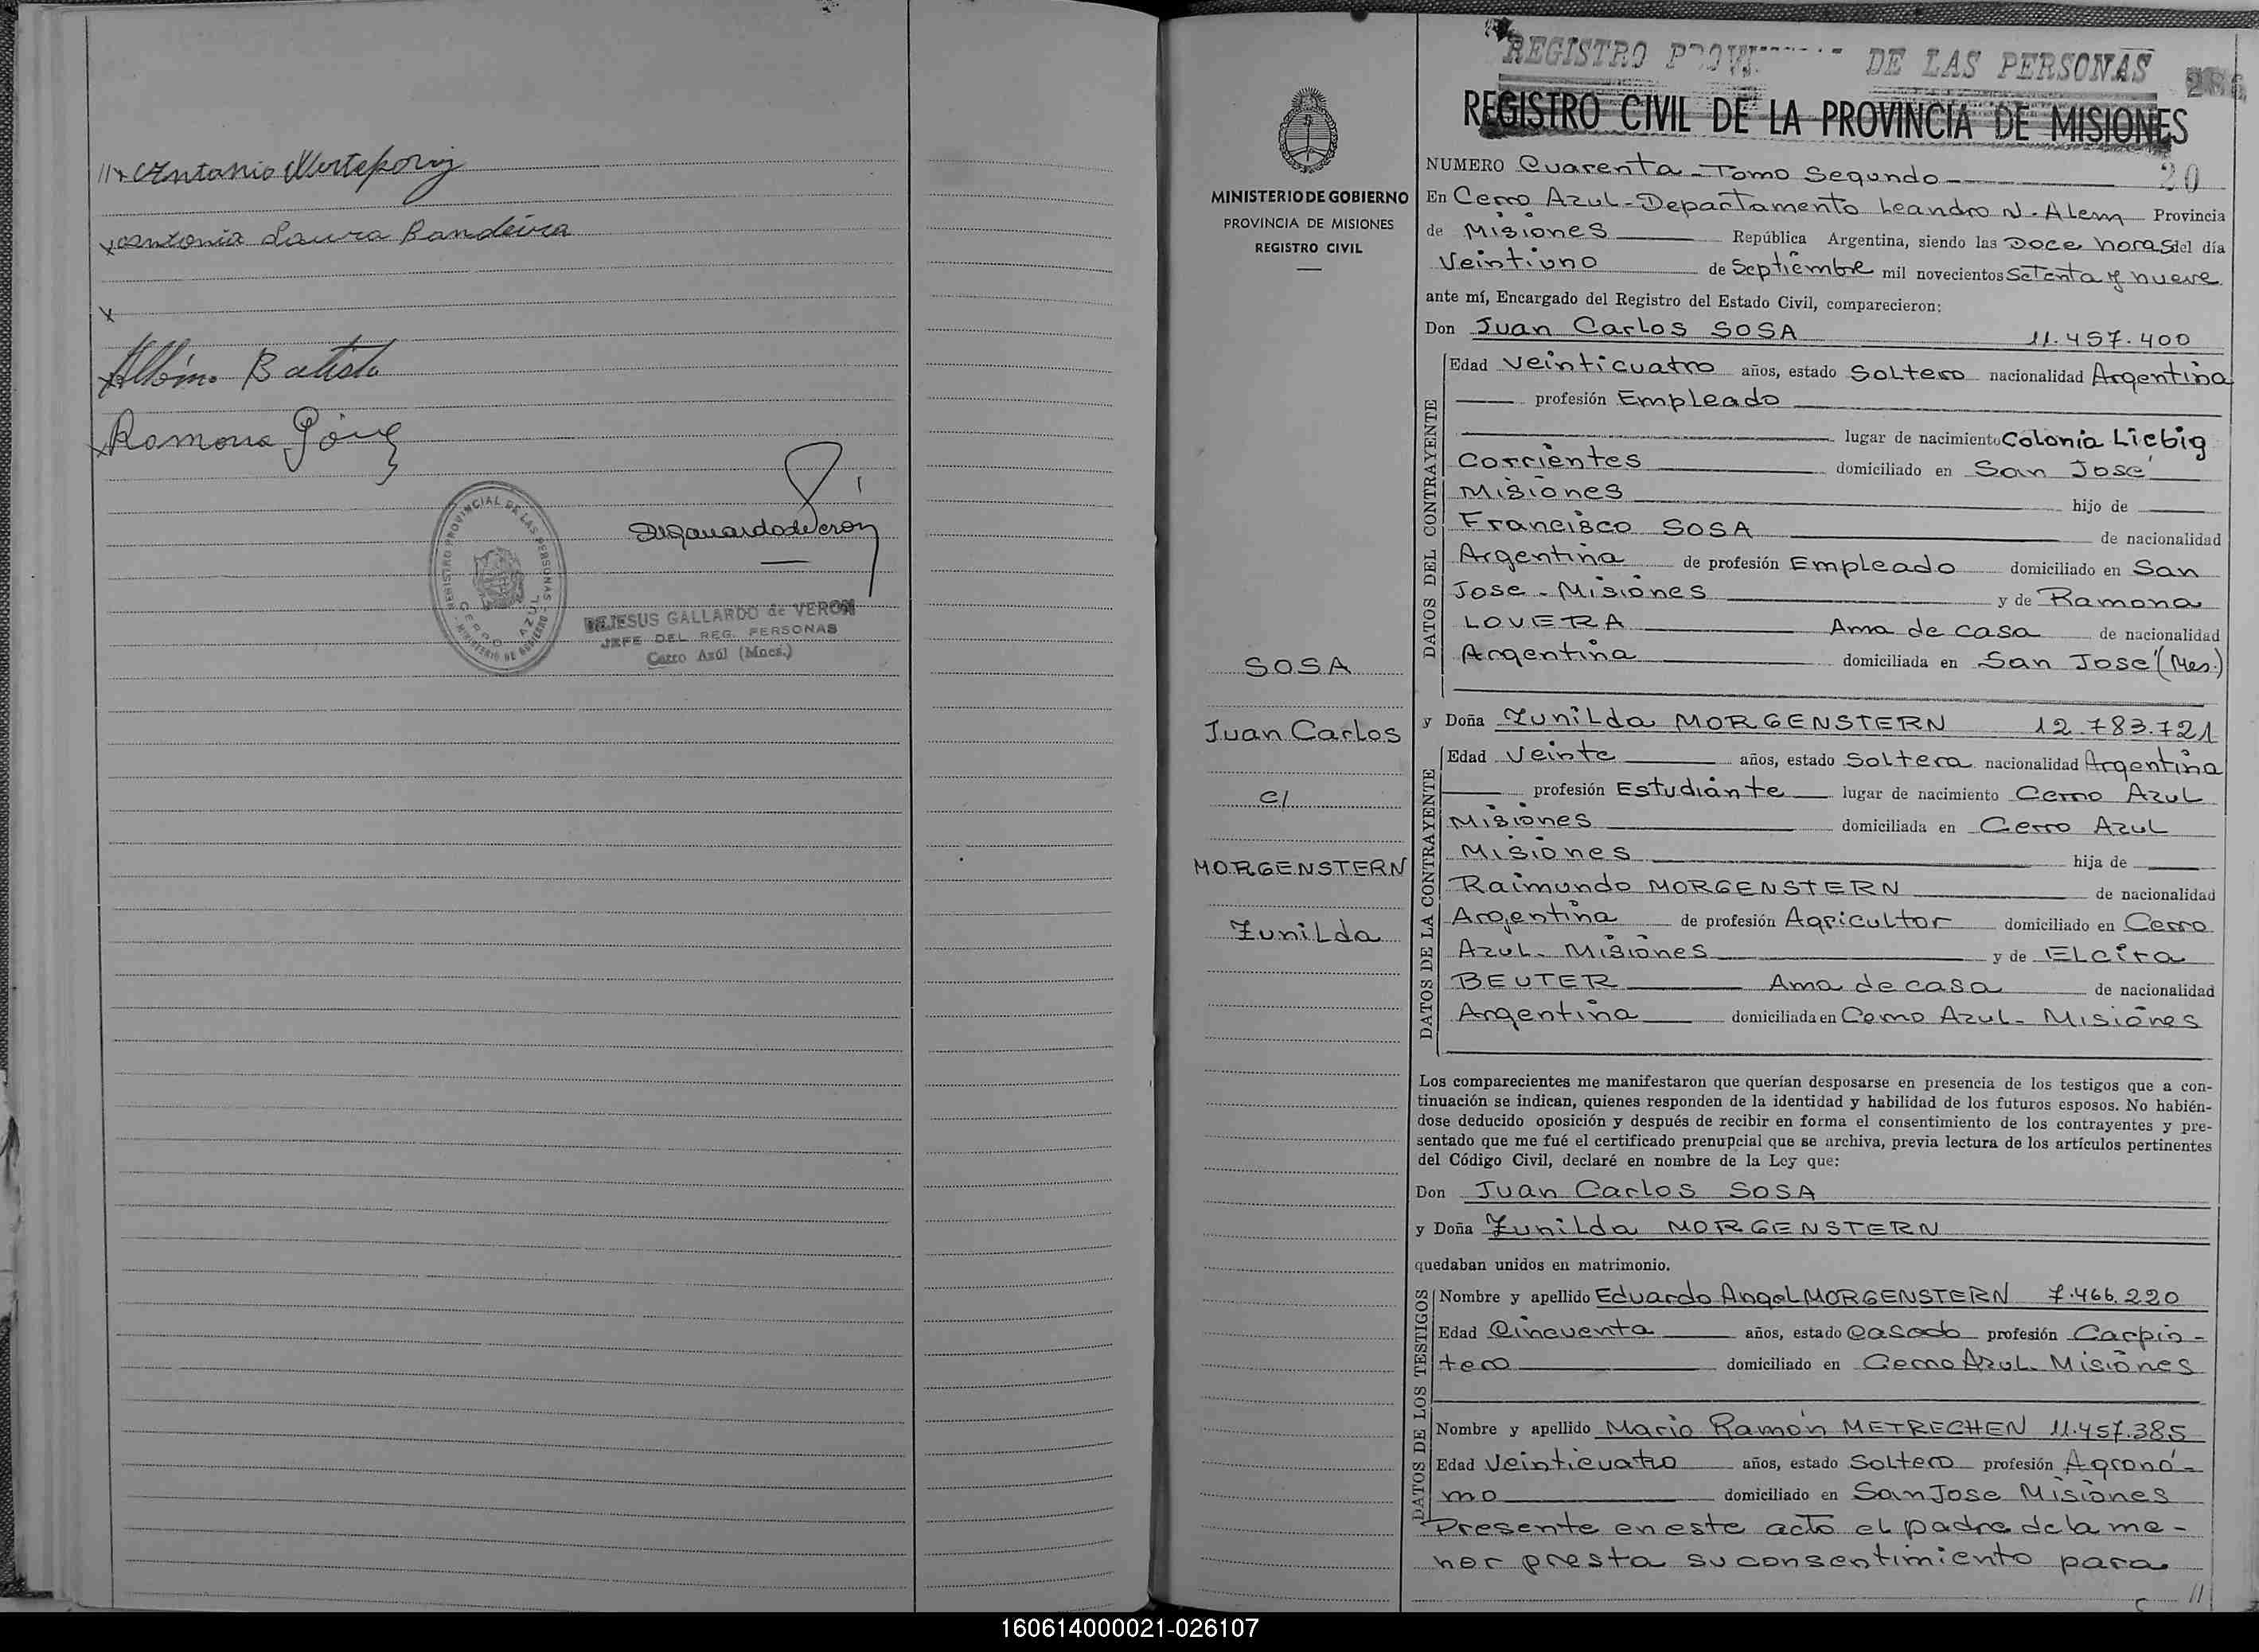 Antonia Laura Bandeira
x
Albino Batista
Ramona
REGISTRO PROVINCIAL DE LAS PERSONAS
CERRO AZUL
MINISTERIO DE GOBIERNO
DEJESUS GALLARDO de VERON
JEFE DEL REG. PERSONAS
Cerro Azúl (Mnes.)
MINISTERIO DE GOBIERNO
PROVINCIA DE MISIONES
REGISTRO CIVIL
SOSA
Juan Carlos
c/
MORGENSTERN
Zunilda
REGISTRO DE LAS PERSONAS
REGISTRO CIVIL DE LA PROVINCIA DE MISIONES
NUMERO Cuarenta - Tomo Segundo 20
En Cerro Azul - Departamento Leandro N. Alem Provincia
de Misiones República Argentina, siendo las Doce horas del día
Veintiuno de Septiembre mil novecientos Setenta y nueve
ante mí, Encargado del Registro del Estado Civil, comparecieron:
Don Juan Carlos SOSA 11.457.400
DATOS DEL CONTRAYENTE
Edad Veinticuatro años, estado Soltero nacionalidad Argentina
profesión Empleado
lugar de nacimiento Colonia Liebig
Corrientes domiciliado en San José
Misiones hijo de
Francisco SOSA de nacionalidad
Argentina de profesión Empleado domiciliado en San
Jose - Misiones y de Ramona
LOVERA Ama de casa de nacionalidad
Argentina domiciliada en San José (Mes.)
y Doña Zunilda MORGENSTERN 12.783.721
DATOS DE LA CONTRAYENTE
Edad Veinte años, estado Soltera nacionalidad Argentina
profesión Estudiante lugar de nacimiento Cerro Azul
Misiones domiciliada en Cerro Azul
Misiones hija de
Raimundo MORGENSTERN de nacionalidad
Argentina de profesión Agricultor domiciliado en Cerro
Azul - Misiones y de Elcira
BEUTER Ama de casa de nacionalidad
Argentina domiciliada en Cerro Azul - Misiones
Los comparecientes me manifestaron que querían desposarse en presencia de los testigos que a con-
tinuación se indican, quienes responden de la identidad y habilidad de los futuros esposos. No habién-
dose deducido oposición y después de recibir en forma el consentimiento de los contrayentes y pre-
sentado que me fué el certificado prenupcial que se archiva, previa lectura de los artículos pertinentes
del Código Civil, declaré en nombre de la Ley que:
Don Juan Carlos SOSA
y Doña Zunilda MORGENSTERN
quedaban unidos en matrimonio.
DATOS DE LOS TESTIGOS
Nombre y apellido Eduardo Angel MORGENSTERN 7.466.220
Edad Cincuenta años, estado Casado profesión Carpin-
tero domiciliado en Cerro Azul - Misiones
Nombre y apellido Mario Ramón METRECHEN 11.457.385
Edad Veinticuatro años, estado Soltero profesión Agronó-
mo domiciliado en San Jose Misiones
Presente en este acto el padre de la me-
nor presta su consentimiento para
//
160614000021-026107